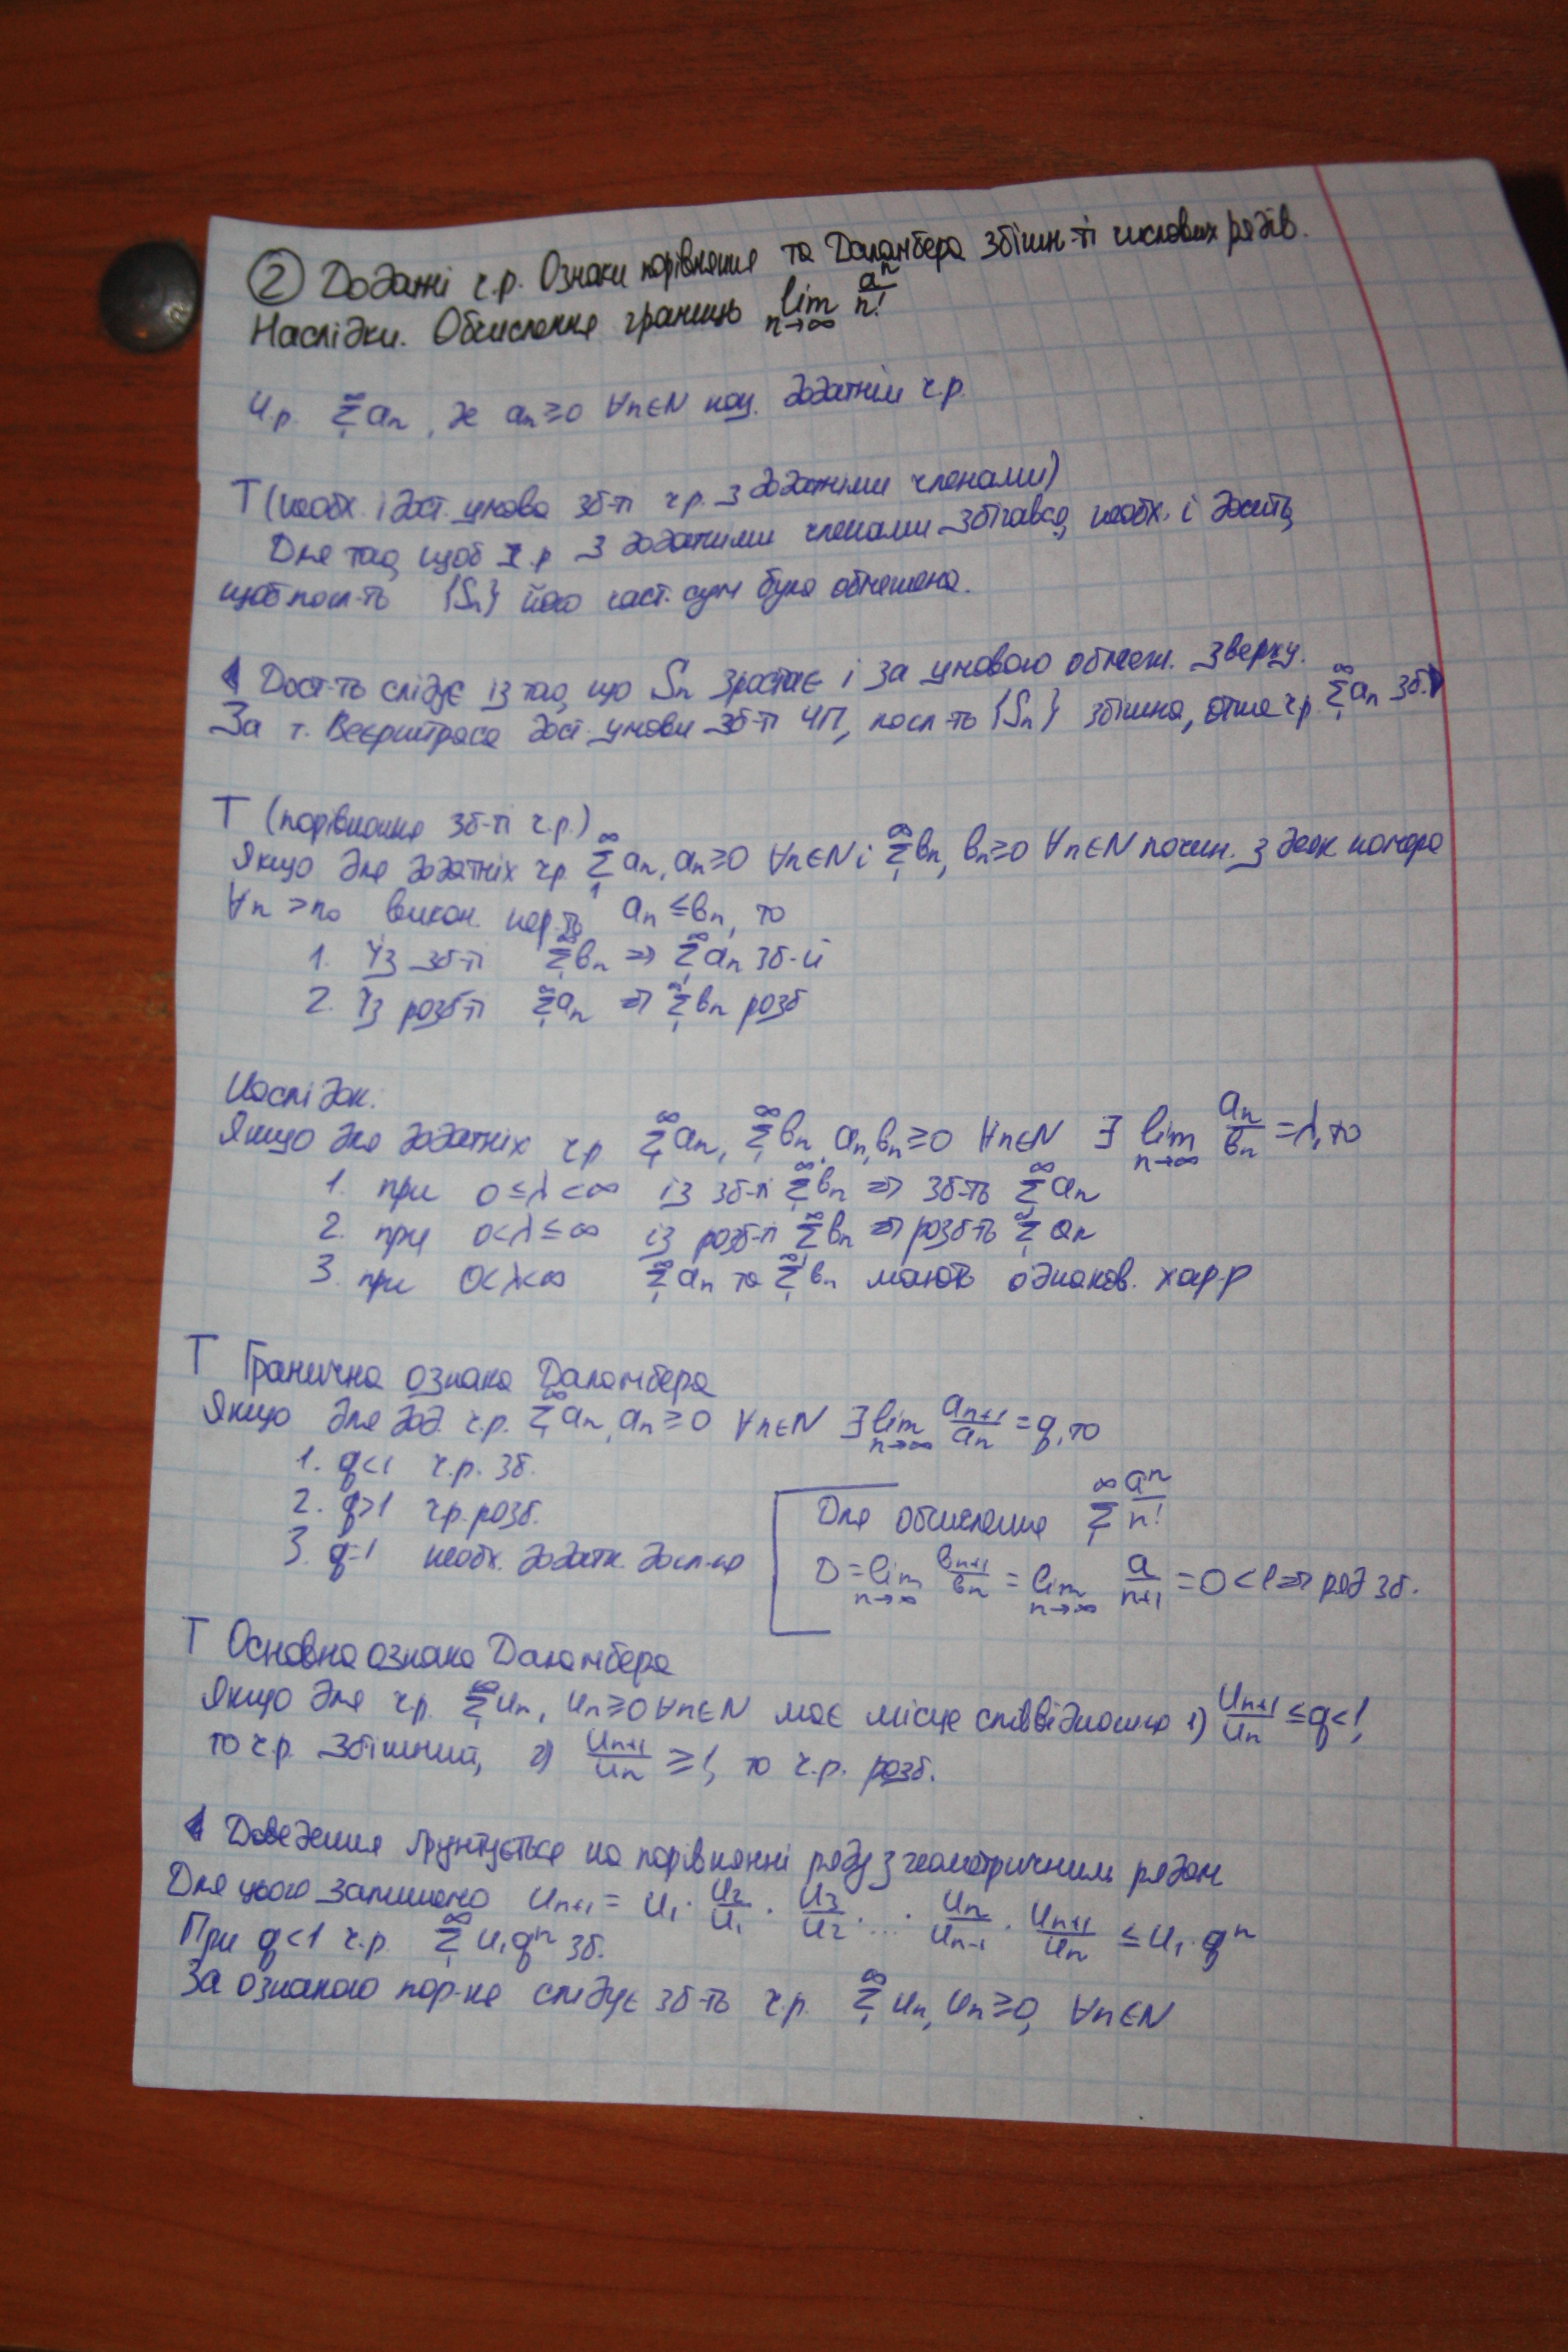 ② Додатні ч.р. Ознаки порівняння та Даламбера збіжн-ті числових рядів.
Наслідки. Обчислення границь lim n→∞ aⁿ/n!
Ч.р. ∑₁^∞ aₙ, де aₙ ≥ 0 ∀n∈N наз. додатнім ч.р.
Т (необх. і дост. умова зб-ті ч.р. з додатніми членами)
Для того, щоб ч.р. з додатніми членами збігався, необх. і досить,
щоб посл-ть {Sₙ} його част. сум була обмежена.
◀ Дост-ть слідує із того, що Sₙ зростає і за умовою обмеж. зверху.
За т. Веєрштраса дост. умови зб-ті ЧП, посл-ть {Sₙ} збіжна, отже ч.р. ∑₁^∞ aₙ зб.▶
Т (порівняння зб-ті ч.р.)
Якщо для додатніх ч.р. ∑₁^∞ aₙ, aₙ ≥ 0 ∀n∈N і ∑₁^∞ bₙ, bₙ ≥ 0 ∀n∈N почин. з деяк номера
∀n > n₀ викон. нер-ть aₙ ≤ bₙ, то
1. Із зб-ті ∑₁^∞ bₙ ⇒ ∑₁^∞ aₙ зб-й
2. Із розб-ті ∑₁^∞ aₙ ⇒ ∑₁^∞ bₙ розб
Наслідок:
Якщо для додатніх ч.р. ∑₁^∞ aₙ, ∑₁^∞ bₙ, aₙ, bₙ ≥ 0 ∀n∈N ∃ lim n→∞ aₙ/bₙ = λ, то
1. при 0 ≤ λ < ∞ із зб-ті ∑₁^∞ bₙ ⇒ зб-ть ∑₁^∞ aₙ
2. при 0 < λ ≤ ∞ із розб-ті ∑₁^∞ bₙ ⇒ розб-ть ∑₁^∞ aₙ
3. при 0 < λ < ∞ ∑₁^∞ aₙ та ∑₁^∞ bₙ мають однаков. хар-р
Т Гранична ознака Даламбера
Якщо для дод. ч.р. ∑₁^∞ aₙ, aₙ ≥ 0 ∀n∈N ∃ lim n→∞ aₙ₊₁/aₙ = q, то
1. q<1 ч.р. зб.
2. q>1 ч.р. розб.
3. q=1 необх. додатк. досл-ня
Для обчислення ∑₁^∞ aⁿ/n!
D = lim n→∞ bₙ₊₁/bₙ = lim n→∞ a/(n+1) = 0 < 1 ⇒ ряд зб.
Т Основна ознака Даламбера
Якщо для ч.р. ∑₁^∞ uₙ, uₙ ≥ 0 ∀n∈N має місце співвідношення 1) uₙ₊₁/uₙ ≤ q < 1,
то ч.р. збіжний, 2) uₙ₊₁/uₙ ≥ 1, то ч.р. розб.
◀ Доведення ґрунтується на порівнянні ряду з геометричним рядом
Для цього запишемо uₙ₊₁ = u₁ · u₂/u₁ · u₃/u₂ · ... · uₙ/uₙ₋₁ · uₙ₊₁/uₙ ≤ u₁ · qⁿ
При q<1 ч.р. ∑₁^∞ u₁qⁿ зб.
За ознакою пор-ня слідує зб-ть ч.р. ∑₁^∞ uₙ, uₙ ≥ 0, ∀n∈N